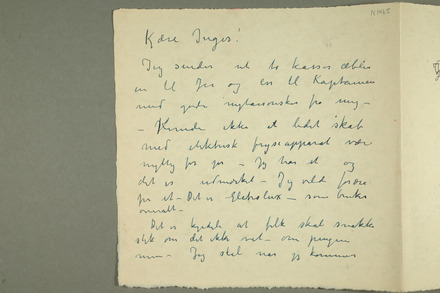 N1065
Kære Inger!
Jeg sender vel to kasser æbler
en til Jer og en til Kaptainen
med gode nytaarsønsker fra mig —
— Kunde ikke et lidet skab
med elektrisk fryseapparat være
nyttig for jer — Jeg har et og
det er udmærket — Jeg vilde
for et — Det er Elektrolux — som bruker
Det er kjedeligt at folk skal snakke
slik om det ikke ved — om pengene
mine — Jeg skal naar jeg kommer